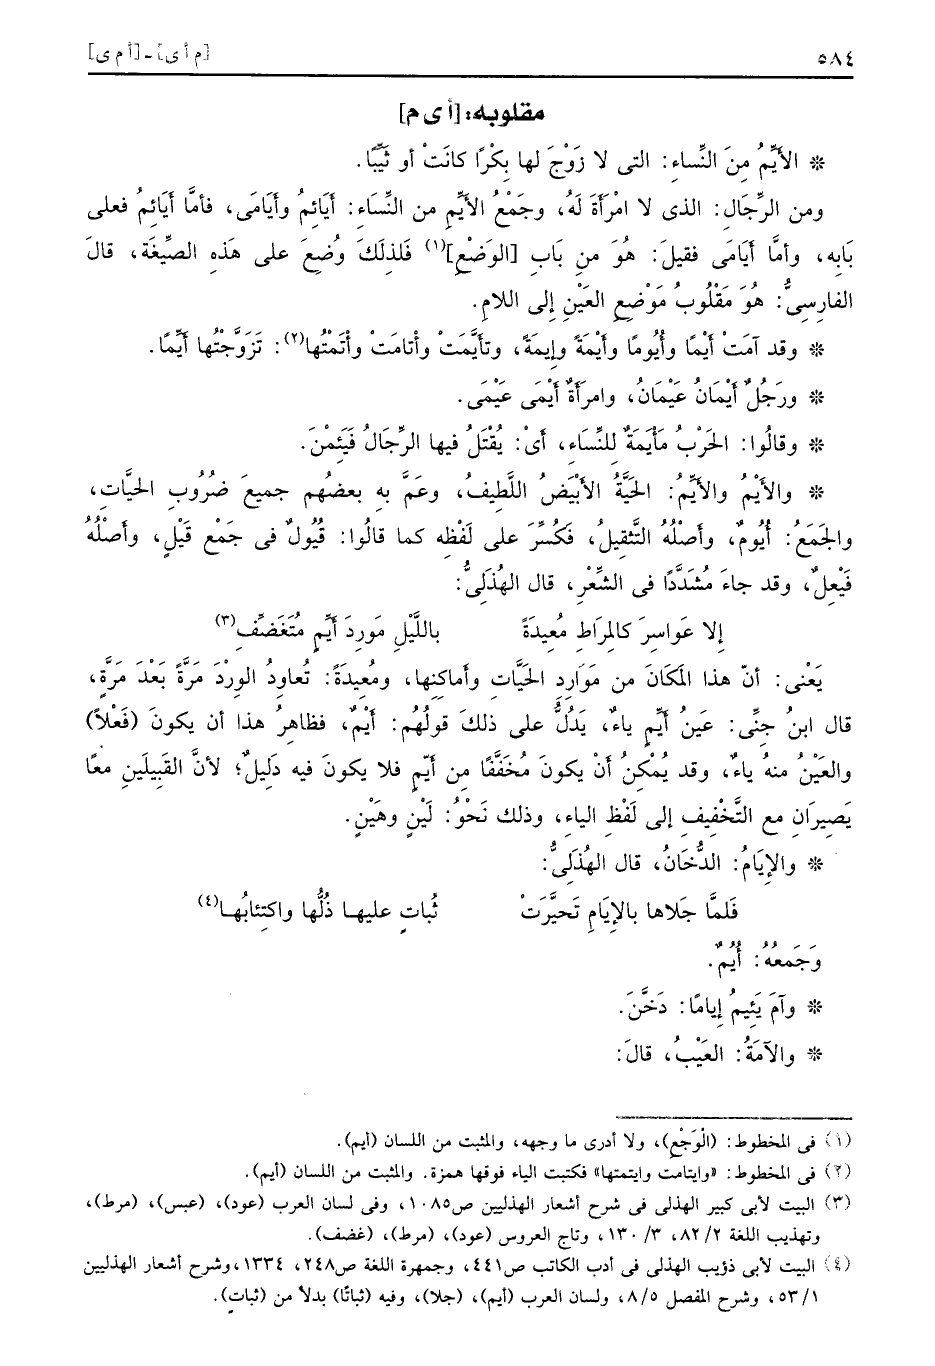 ٥٨٤
[م أ ى] ـ [أ م ى]
مقلوبه: [أ ى م]
* الأَيِّمُ مِنَ النِّساء: التى لا زَوْجَ لها بِكْرًا كانَتْ أو ثَيِّبًا.
ومن الرِّجال: الذى لا امْرَأَةَ لَهُ، وجَمْعُ الأيِّمِ من النِّسَاءِ: أيَائِمُ وأيَامَى، فأمَّا أيَائِم فعلى
بَابِه، وأمَّا أيَامَى فقيلَ: هُوَ من بَابِ [الوَضْعِ](١) فَلذلكَ وُضِعَ على هَذه الصِّيغَة، قالَ
الفارِسِىُّ: هُوَ مَقْلُوبُ مَوْضعِ العَيْنِ إلى اللامِ.
* وقد آمَتْ أيْمًا وأُيُومًا وأيْمَةً وإيمَةً، وتأيَّمَتْ وأتامَتْ وأتَمْتُها(٢): تَزَوَّجْتُها أيِّمًا.
* ورَجُلٌ أيْمَانُ عَيْمَانُ، وامرَأَةٌ أيْمَى عَيْمَى.
* وقالُوا: الحَرْبُ مَأْيَمَةٌ للنِّسَاء، أىْ: يُقْتَلُ فيها الرِّجَالُ فَيَئِمْنَ.
* والأيْمُ والأيِّمُ: الحَيَّةُ الأبْيَضُ اللَّطِيفُ، وعَمَّ به بعضُهم جميعَ ضُرُوبِ الحيَّات،
والجَمعُ: أيُومٌ، وأصْلُهُ التَّثقِيلُ، فَكُسِّرَ على لَفْظِه كما قالُوا: قُيُولٌ فى جَمْع قَيْلٍ، وأصْلُهُ
فَيْعِلٌ، وقد جاءَ مُشَدَّدًا فى الشِّعْرِ، قال الهُذَلِىُّ:
إلا عَواسِرَ كالمِرَاطِ مُعِيدَةً باللَّيْلِ مَورِدَ أيِّمٍ مُتَغَضِّفِ(٣)
يَعْنى: أنّ هذا المَكَانَ من مَوَارِدِ الحَيَّاتِ وأماكِنِها، ومُعِيدَةً: تُعاوِدُ الوِرْدَ مَرَّةً بَعْدَ مَرَّة،
قال ابنُ جِنِّى: عَينُ أيِّمٍ ياءٌ، يَدُلُّ على ذلكَ قولُهُم: أيْمٌ، فظاهِرُ هذا أن يكونَ (فَعْلاً)
والعَيْنُ منهُ ياءٌ، وقد يُمْكِنُ أنْ يكونَ مُخَفَّفًا من أيِّمٍ فلا يكونَ فيه دَلِيلٌ؛ لأنَّ القَبِيلَينِ معًا
يَصِيرَانِ مع التَّخْفِيفِ إلى لَفْظِ الياءِ، وذلك نَحْوُ: لَيْنٍ وهَيْنٍ.
* والإيَامُ: الدُّخَانُ، قال الهُذَلِىُّ:
فَلمَّا جَلاها بالإيَامِ تَحيَّرَتْ ثُباتٍ عليها ذُلُّها واكتِئابُها(٤)
وَجَمعُهُ: أُيُمٌ.
* وآمَ يَئِيمُ إيامًا: دَخَّنَ.
* والآمَةُ: العَيْبُ، قالَ:
(١) فى المخطوط: (الْوَجْعِ)، ولا أدرى ما وجهه، والمثبت من اللسان (أيم).
(٢) فى المخطوط: «وايتامت وايتمتها» فكتبت الياء فوقها همزة. والمثبت من اللسان (أيم).
(٣) البيت لأبى كبير الهذلى فى شرح أشعار الهذليين ص١٠٨٥، وفى لسان العرب (عود)، (عبس)، (مرط)،
وتهذيب اللغة ٢/ ٨٢، ٣/ ١٣٠، وتاج العروس (عود)، (مرط)، (غضف).
(٤) البيت لأبى ذؤيب الهذلى فى أدب الكاتب ص٤٤١، وجمهرة اللغة ص٢٤٨، ١٣٣٤،وشرح أشعار الهذليين
١/ ٥٣، وشرح المفصل ٥/ ٨، ولسان العرب (أيم)، (جلا)، وفيه (ثباتًا) بدلاً من (ثبات).